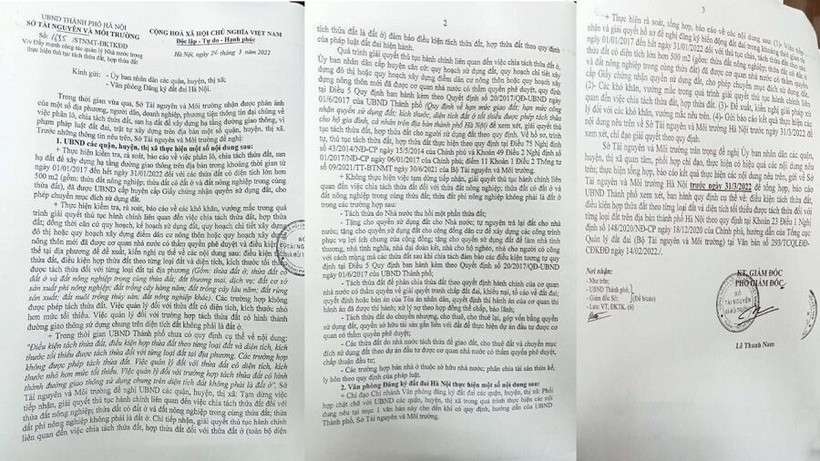 UBND THÀNH PHỐ HÀ NỘI
SỞ TÀI NGUYÊN VÀ MÔI TRƯỜNG
CỘNG HOÀ XÃ HỘI CHỦ NGHĨA VIỆT NAM
Độc lập - Tự do - Hạnh phúc
Số: 1685/STNMT-ĐKTKĐĐ
V/v Đẩy mạnh công tác quản lý Nhà nước trong
thực hiện thủ tục tách thửa đất, hợp thửa đất.
Hà Nội, ngày 24 tháng 3 năm 2022
Kính gửi: - Ủy ban nhân dân các quận, huyện, thị xã;
- Văn phòng Đăng ký đất đai Hà Nội.
Trong thời gian vừa qua, Sở Tài nguyên và Môi trường nhận được phản ánh
của một số địa phương, người dân, doanh nghiệp, phương tiện thông tin đại chúng về
việc phân lô, chia tách thửa đất, san hạ đất để xây dựng hạ tầng đường giao thông, vi
phạm pháp luật đất đai, trật tự xây dựng trên địa bàn một số quận, huyện, thị xã.
Trước những thông tin nêu trên, Sở Tài nguyên và Môi trường đề nghị:
1. UBND các quận, huyện, thị xã thực hiện một số nội dung sau:
+ Thực hiện kiểm tra, rà soát, báo cáo về việc phân lô, chia tách thửa đất, san
hạ đất để xây dựng hạ tầng đường giao thông trên địa bàn trong khoảng thời gian từ
ngày 01/01/2017 đến hết ngày 31/01/2022 đối với các thửa đất có diện tích lớn hơn
500 m2 (gồm: thửa đất nông nghiệp; thửa đất ở và đất nông nghiệp trong cùng
thửa đất), đã được UBND cấp huyện cấp Giấy chứng nhận quyền sử dụng đất, cho
phép chuyển mục đích sử dụng đất.
+ Thực hiện kiểm tra, rà soát, báo cáo về các khó khăn, vướng mắc trong quá
trình giải quyết thủ tục hành chính liên quan đến việc chia tách thửa đất, hợp thửa
đất; đồng thời căn cứ quy hoạch, kế hoạch sử dụng đất, quy hoạch chi tiết xây dựng
đô thị hoặc quy hoạch xây dựng điểm dân cư nông thôn hoặc quy hoạch xây dựng
nông thôn mới đã được cơ quan nhà nước có thẩm quyền phê duyệt và điều kiện cụ
thể tại địa phương để đề xuất, kiến nghị cụ thể về các nội dung sau: điều kiện tách
thửa đất, điều kiện hợp thửa đất theo từng loại đất và diện tích, kích thước tối thiểu
được tách thửa đất đối với từng loại đất tại địa phương (Gồm: thửa đất ở; thửa đất có
đất ở và đất nông nghiệp trong cùng thửa đất; đất thương mại, dịch vụ; đất cơ sở
sản xuất phi nông nghiệp; đất trồng cây hàng năm; đất trồng cây lâu năm; đất rừng
sản xuất; đất nuôi trồng thủy sản; đất nông nghiệp khác). Các trường hợp không
được phép tách thửa đất. Việc quản lý đối với thửa đất có diện tích, kích thước nhỏ
hơn mức tối thiểu. Việc quản lý đối với trường hợp tách thửa đất có hình thành
đường giao thông sử dụng chung trên diện tích đất không phải là đất ở.
+ Trong thời gian UBND Thành phố chưa có quy định cụ thể về nội dung:
"Điều kiện tách thửa đất, điều kiện hợp thửa đất theo từng loại đất và diện tích, kích
thước tối thiểu được tách thửa đất đối với từng loại đất tại địa phương. Các trường hợp
không được phép tách thửa đất. Việc quản lý đối với thửa đất có diện tích, kích
thước nhỏ hơn mức tối thiểu. Việc quản lý đối với trường hợp tách thửa đất có hình
thành đường giao thông sử dụng chung trên diện tích đất không phải là đất ở", Sở
Tài nguyên và Môi trường đề nghị UBND các quận, huyện, thị xã: Tạm dừng việc
tiếp nhận, giải quyết thủ tục hành chính liên quan đến việc chia tách thửa đất đối với
thửa đất nông nghiệp; thửa đất ở và đất nông nghiệp trong cùng thửa đất; thửa
đất phi nông nghiệp không phải là đất ở. Chỉ tiếp nhận, giải quyết thủ tục hành chính
liên quan đến việc chia tách thửa đất, hợp thửa đất đối với thửa đất ở (toàn bộ diện
2
tích thửa đất là đất ở) đảm bảo điều kiện tách thửa đất, hợp thửa đất theo quy định
của pháp luật đất đai hiện hành.
Quá trình giải quyết thủ tục hành chính liên quan đến việc chia tách thửa đất,
Ủy ban nhân dân cấp huyện căn cứ quy hoạch sử dụng đất, quy hoạch chi tiết xây
dựng đô thị hoặc quy hoạch xây dựng điểm dân cư nông thôn hoặc quy hoạch xây
dựng nông thôn mới đã được cơ quan nhà nước có thẩm quyền phê duyệt, quy định
tại Điều 5 Quy định ban hành kèm theo Quyết định số 20/2017/QĐ-UBND ngày
01/6/2017 của UBND Thành phố (Quy định về hạn mức giao đất; hạn mức công
nhận quyền sử dụng đất; kích thước, diện tích đất ở tối thiểu được phép tách thửa
cho hộ gia đình, cá nhân trên địa bàn thành phố Hà Nội) để xem xét, giải quyết việc
tách thửa đất, hợp thửa đất cho người sử dụng đất theo quy định. Về hồ sơ, trình
tự, thủ tục tách thửa đất, hợp thửa đất thực hiện theo quy định tại Điều 75 Nghị định
số 43/2014/NĐ-CP ngày 15/5/2014 của Chính phủ và Khoản 49 Điều 2 Nghị định số
01/2017/NĐ-CP ngày 06/01/2017 của Chính phủ; điểm 11 Khoản 1 Điều 2 Thông tư
số 09/2021/TT-BTNMT ngày 30/6/2021 của Bộ Tài nguyên và Môi trường.
+ Không thực hiện việc tạm dừng tiếp nhận, giải quyết thủ tục hành chính liên
quan đến việc chia tách thửa đất đối với các thửa đất nông nghiệp; thửa đất có đất ở và
đất nông nghiệp trong cùng thửa đất; thửa đất phi nông nghiệp không phải là đất ở
trong các trường hợp sau:
- Tách thửa do Nhà nước thu hồi một phần thửa đất;
- Tặng cho quyền sử dụng đất cho Nhà nước; tự nguyện trả lại đất cho nhà
nước; tặng cho quyền sử dụng đất cho cộng đồng dân cư để xây dựng các công trình
phục vụ lợi ích chung của cộng đồng; tặng cho quyền sử dụng đất để làm nhà tình
thương, nhà tình nghĩa, nhà đại đoàn kết, nhà cho hộ nghèo, nhà cho người có công
với cách mạng mà các thửa đất sau khi chia tách đảm bảo điều kiện tương tự quy định
tại Điều 5 Quy định ban hành kèm theo Quyết định số 20/2017/QĐ-UBND
ngày 01/6/2017 của UBND Thành phố;
- Việc chia tách thửa đất theo quyết định hành chính của cơ quan
nhà nước có thẩm quyền về giải quyết tranh chấp đất đai, khiếu nại, tố cáo về đất đai;
quyết định hoặc bản án của Tòa án nhân dân, quyết định thi hành án của cơ quan thi
hành án đã được thi hành; xử lý nợ theo hợp đồng thế chấp, bảo lãnh;
- Tách thửa đất do chuyển nhượng, cho thuê, cho thuê lại, góp vốn bằng quyền
sử dụng đất, quyền sở hữu tài sản gắn liền với đất để thực hiện dự án đầu tư được cơ
quan có thẩm quyền phê duyệt;
- Các thửa đất do nhà nước tách thửa để giao đất, cho thuê đất và chuyển mục
đích sử dụng đất theo dự án đầu tư được cơ quan nhà nước có thẩm quyền phê duyệt,
chấp thuận đầu tư;
- Các trường hợp bán nhà ở thuộc sở hữu nhà nước; phân chia tài sản thừa kế,
ly hôn theo quy định của pháp luật.
2. Văn phòng Đăng ký đất đai Hà Nội thực hiện một số nội dung sau:
+ Chỉ đạo Chi nhánh Văn phòng đăng ký đất đai các quận, huyện, thị xã: Phối
hợp chặt chẽ với UBND các quận, huyện, thị xã trong quá trình thực hiện các nội
dung nêu tại mục 1 văn bản này cho đến khi có quy định, hướng dẫn của UBND
Thành phố, Sở Tài nguyên và Môi trường.
3
+ Thực hiện rà soát, tổng hợp, báo cáo về các nội dung sau: (1)- Việc tiếp
01/01/2017 đến hết ngày 31/01/2022 đối với các
thửa đất có diện tích lớn hơn 500 m2
cấp Giấy chứng nhận quyền sử dụng đất, cho phép
(2)- Các khó khăn, vướng mắc trong quá trình giải quyết thủ tục hành chính liên
quan đến việc chia tách thửa đất, hợp thửa đất. (3)- Đề xuất, kiến nghị giải pháp xử
lý đối với các khó khăn, vướng mắc nêu trên. (4)- Gửi báo cáo kết quả thực hiện các
nội dung nêu trên về Sở Tài nguyên và Môi trường Hà Nội trước ngày 31/3/2022 để
xem xét, chỉ đạo giải quyết theo quy định.
Sở Tài nguyên và Môi trường trân trọng đề nghị Ủy ban nhân dân các quận,
huyện, thị xã quan tâm, phối hợp chỉ đạo, thực hiện có hiệu quả các nội dung nêu
trên; thực hiện tổng hợp, báo cáo kết quả thực hiện các nội dung nêu trên, gửi về Sở
Tài nguyên và Môi trường Hà Nội trước ngày 31/3/2022 để tổng hợp, báo cáo
UBND Thành phố xem xét, ban hành quy định cụ thể về: điều kiện tách thửa đất,
điều kiện hợp thửa đất theo từng loại đất và diện tích tối thiểu được tách thửa đất đối với
từng loại đất trên địa bàn thành phố Hà Nội theo quy định tại Khoản 23 Điều 1 Nghị
định số 148/2020/NĐ-CP ngày 18/12/2020 của Chính phủ, hướng dẫn của Tổng cục
Quản lý đất đai (Bộ Tài nguyên và Môi trường) tại Văn bản số 293/TCQLĐĐ-
CĐKĐĐ ngày 14/02/2022./.
Nơi nhận:
- Như trên;
- UBND Thành phố;
- Giám đốc Sở;
(Để b/cáo)
- Lưu: VT, ĐKTK. (6)
KT. GIÁM ĐỐC
PHÓ GIÁM ĐỐC
SỞ
TÀI NGUYÊN
Lê Thanh Nam